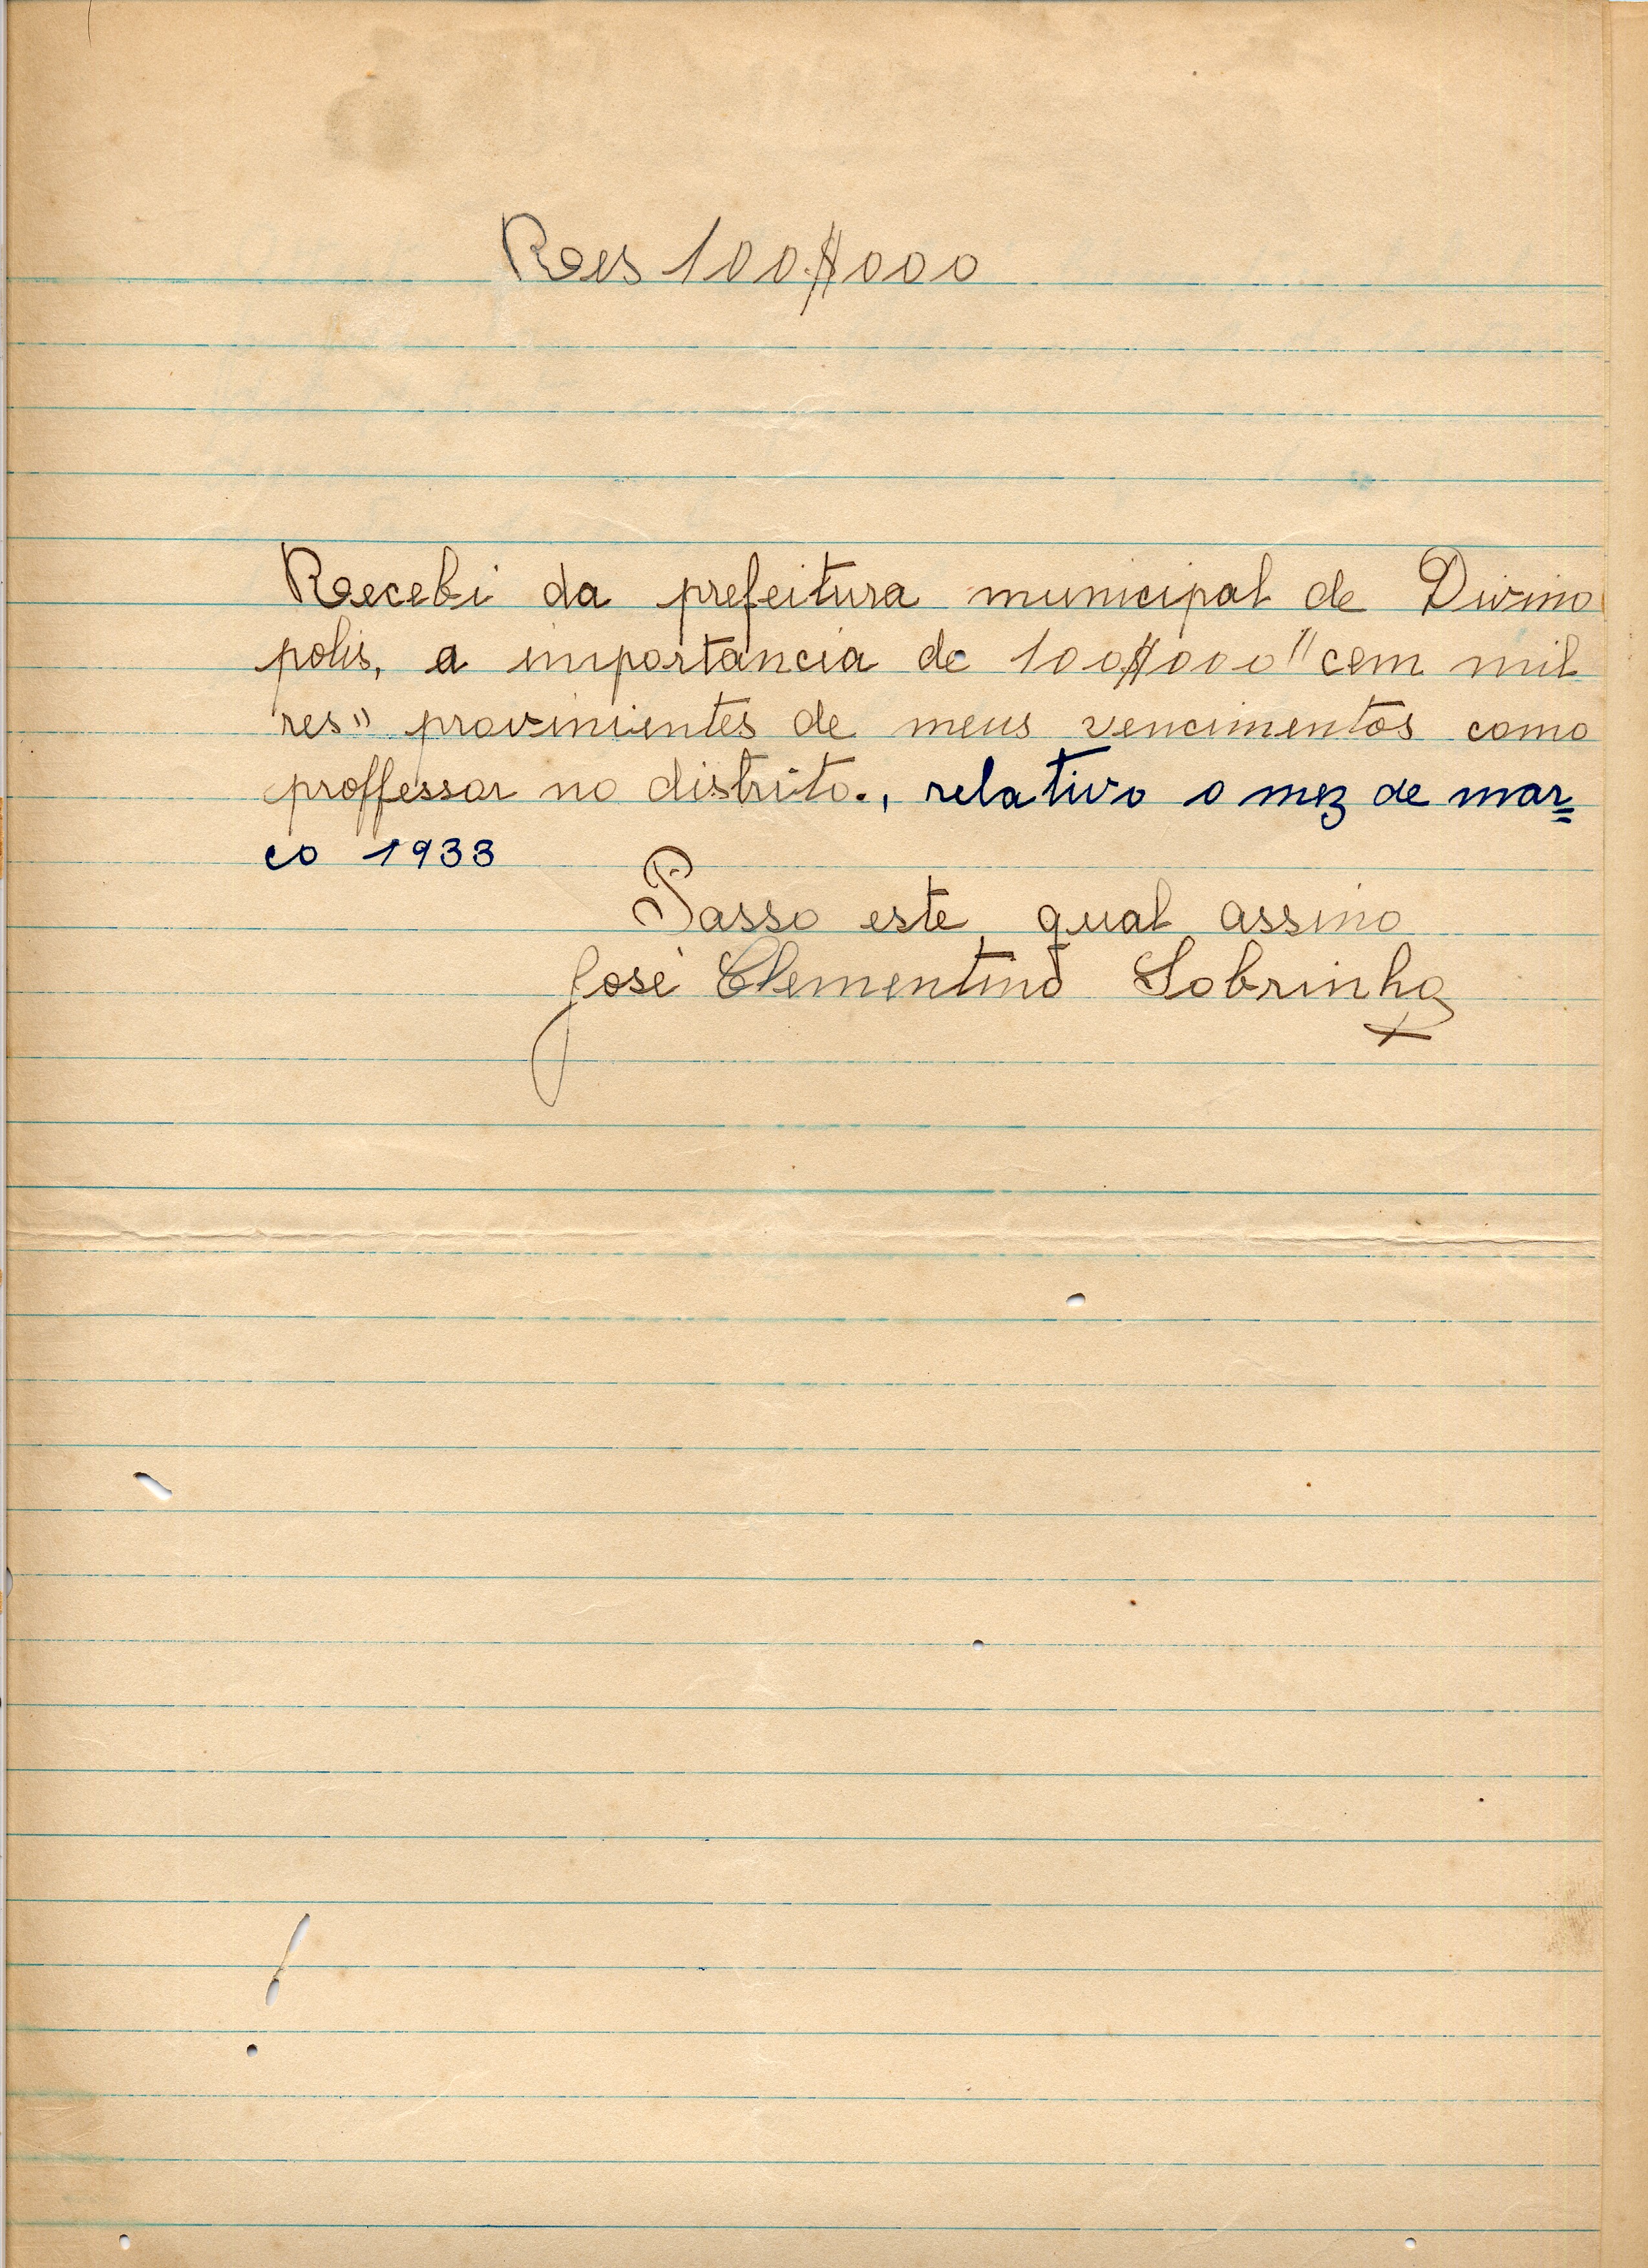 Roes 100$000
Recebi da prefeitura municipal de Divino
polis, a importancia de 100$000 "cem mil
res" provinientes de meus vencimentos como
proffessor no distrito., relativo o mez de mar=
co 1933
Passo este qual assino
José Clementino Sobrinho